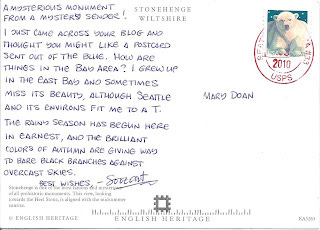 A MYSTERIOUS MONUMENT
FROM A MYSTERY SENDER!
STONEHENGE
WILTSHIRE
I JUST CAME ACROSS YOUR BLOG AND
THOUGHT YOU MIGHT LIKE A POSTCARD
SENT OUT OF THE BLUE. HOW ARE
THINGS IN THE BAY AREA? I GREW UP
IN THE EAST BAY AND SOMETIMES
MISS ITS BEAUTY, ALTHOUGH SEATTLE
AND ITS ENVIRONS FIT ME TO A T.
THE RAINY SEASON HAS BEGUN HERE
IN EARNEST, AND THE BRILLIANT
COLORS OF AUTUMN ARE GIVING WAY
TO BARE BLACK BRANCHES AGAINST
OVERCAST SKIES.
BEST WISHES, -
2010
USPS
MARY DOAN
Stonehenge is one of the most famous and mysterious
of all prehistoric monuments. This view, looking
towards the Heel Stone, is aligned with the midsummer
sunrise.
© ENGLISH HERITAGE
ENGLISH HERITAGE